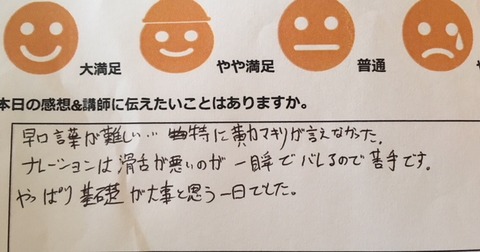 大満足 やや満足 普通
本日の感想&講師に伝えたいことはありますか。
早口言葉が難しい… 特に黄カマキリが言えなかった。
ナレーションは滑舌が悪いのが一瞬でバレるので苦手です。
やっぱり基礎が大事と思う一日でした。